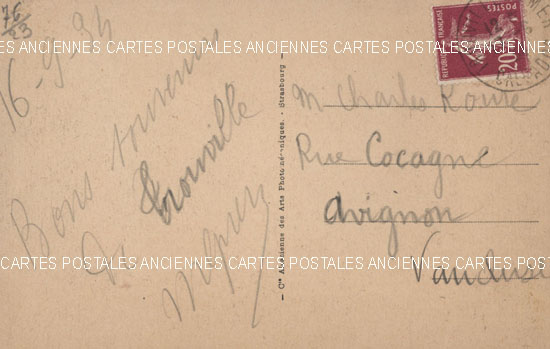 76
23
16-9-34
Bons souvenirs
De Trouville
M Charles Roure
Rue Cocagne
Avignon
Vaucluse
POSTES
REPUBLIQUE FRANÇAISE
20c
Cie des Arts Photomécaniques. - Strasbourg
CARTES POSTALES ANCIENNES CARTES POSTALES ANCIENNES CARTES POSTALES ANCIENNES
CARTES POSTALES ANCIENNES CARTES POSTALES ANCIENNES CARTES POSTALES ANCIENNES